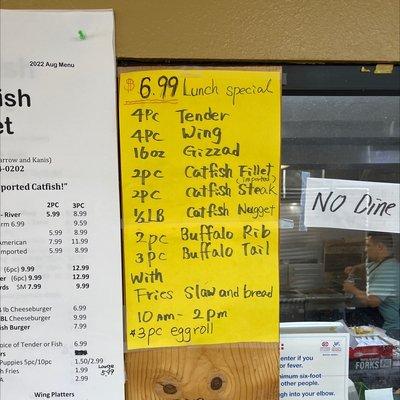 2022 Aug Menu
ish
et
arrow and Kanis)
4-0202
ported Catfish!"
2PC 3PC
- River 5.99 8.99
rm 6.99 9.59
5.99 8.99
American 7.99 11.99
5.99 8.99
(6pc) 9.99 12.99
er (6pc) 9.99 12.99
rds SM 7.99 9.99
lb Cheeseburger 6.99
BL Cheeseburger 9.99
ish Burger 7.99
oice of Tender or Fish 6.99
Puppies 5pc/10pc 1.50/2.99
h Fries Large 5.99
A 2.99
Wing Platters
$6.99 Lunch special
4Pc Tender
4Pc Wing
16oz Gizzad
2pc Catfish Fillet
(imported)
2pc Catfish Steak
1/2 LB Catfish Nugget
2pc Buffalo Rib
3pc Buffalo Tail
With
Fries Slaw and bread
10am - 2pm
$3pc eggroll
NO Dine
FORKS
enter if you
mum six-foot
other people.
ugh into your
elbow.